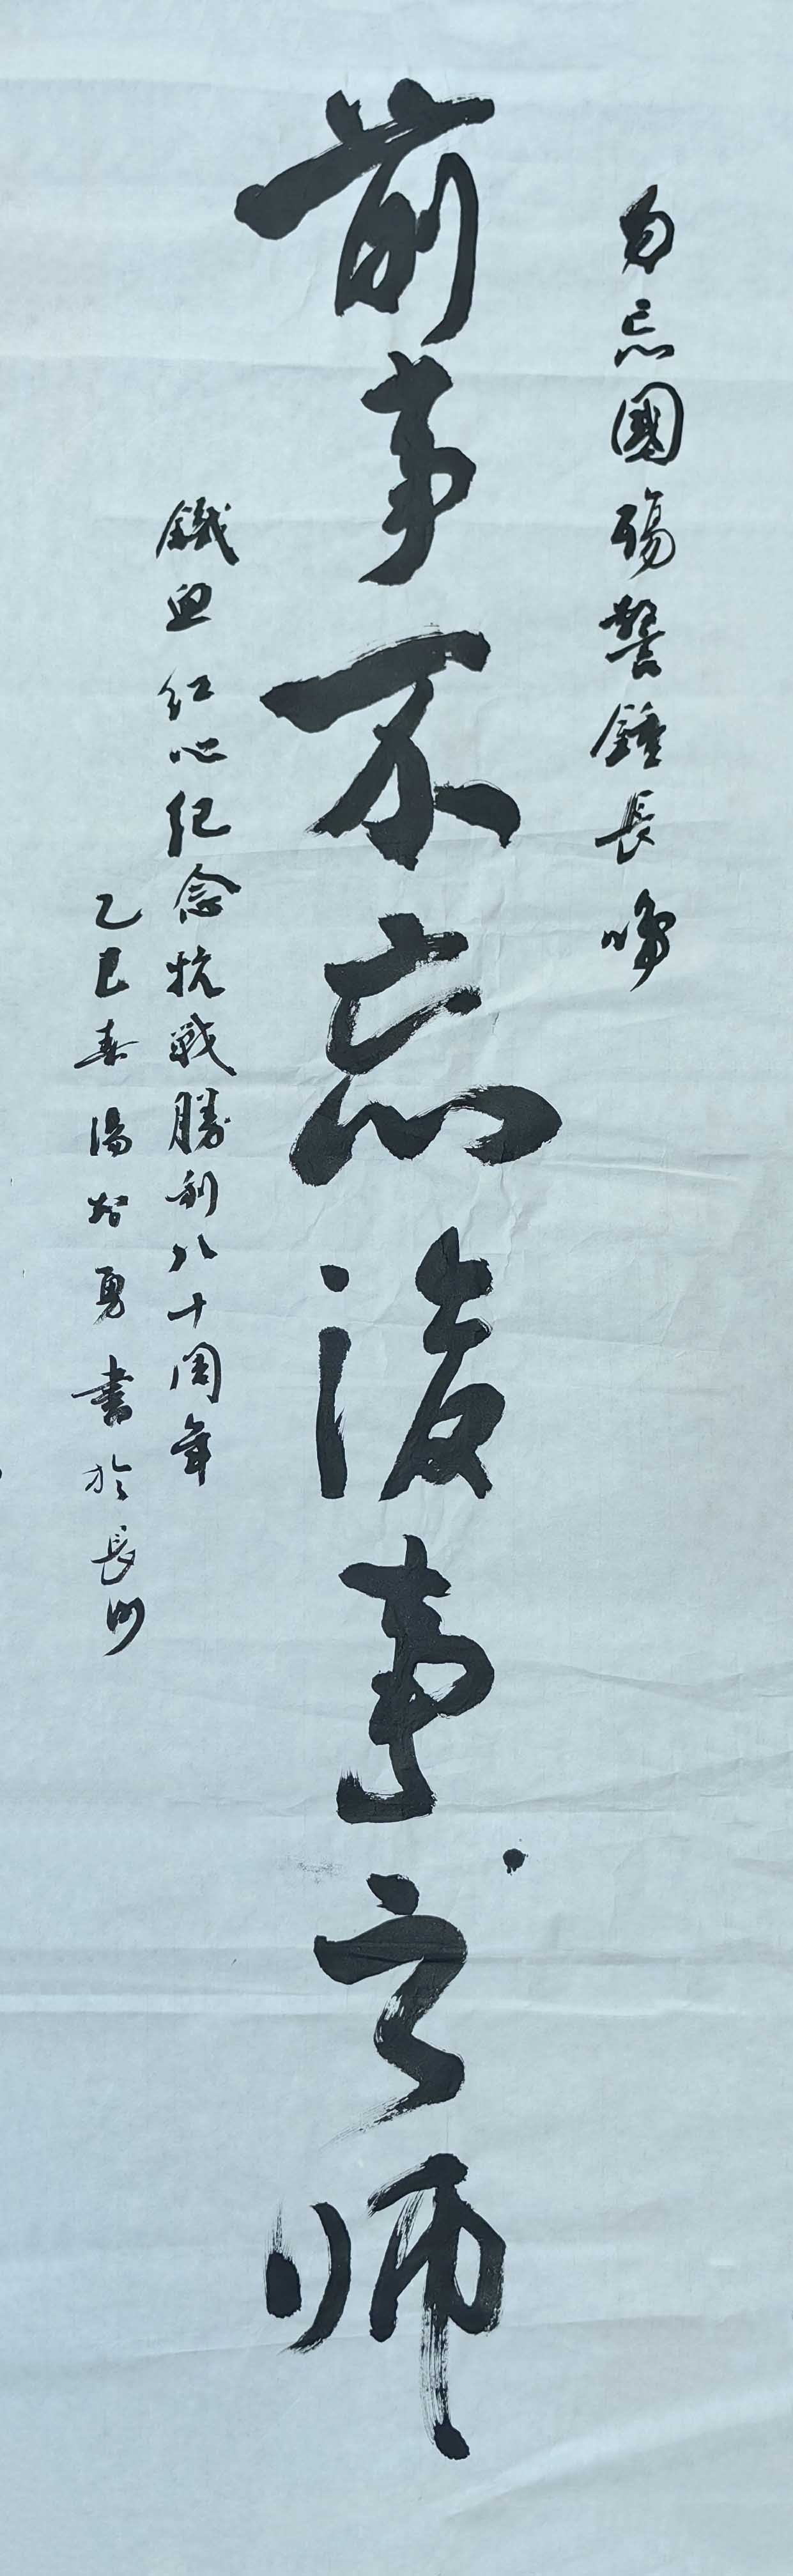 勿忘國殤警鐘長鳴
前事不忘後事之师
鐵血红心纪念抗戰勝利八十周年
乙巳春湯於勇書於長沙